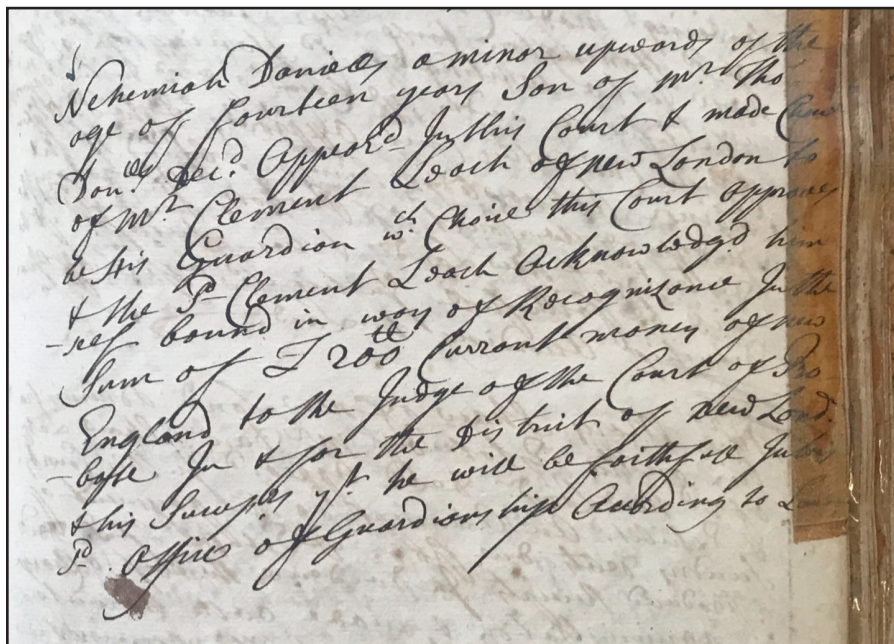 Nehemiah Daniells a minor upwards of the
age of fourteen years Son of Mr. Tho
Daniells Decd. Appeard In this Court & made Choice
of Mr. Clement Leach of new London to
be His Guardion wch. Choice this Court approves
& the Sd Clement Leach Acknowledgd him
-self bound in way of Recognizance In the
Sum of £ 200 Currant money of new
England to the Judge of the Court of Pro
-bate In & for the District of new Lond.
& his Sucessrs yt. he will be faithfull In his
Sd Office of Guardionship According to Law